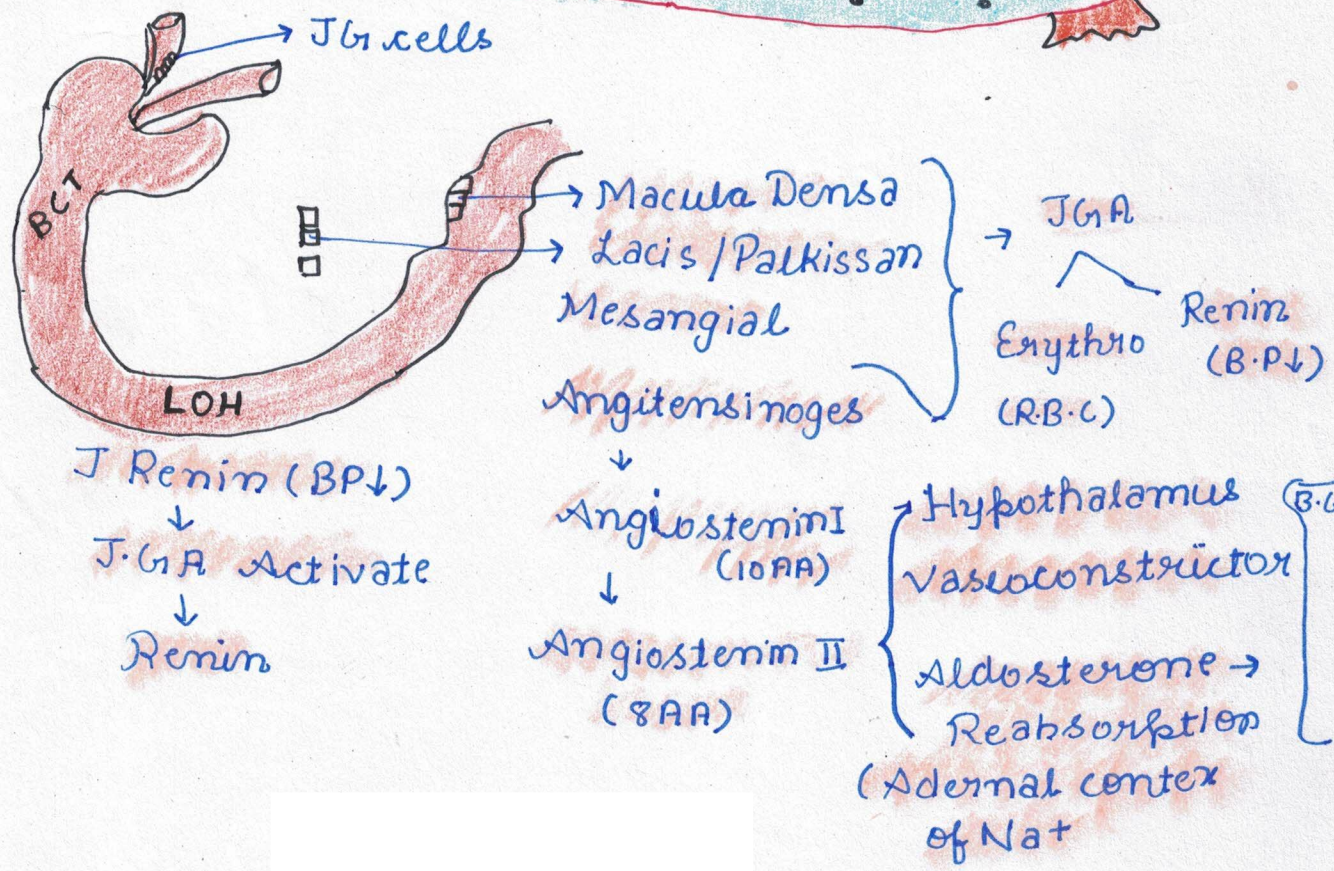 JG cells
BCT
Macula Densa
Lacis / Palkissan
Mesangial
→ JGA
Erythro
(R.B.C)
Renin
(B.P↓)
LOH
J Renin (BP↓)
↓
J.GA Activate
↓
Renin
Angitensinoges
↓
AngiosteninI
(10AA)
↓
Angiostenin II
(8AA)
Hypothalamus
Vasoconstrictor
Aldosterone →
Reabsorption
(Adernal contex
of Na+